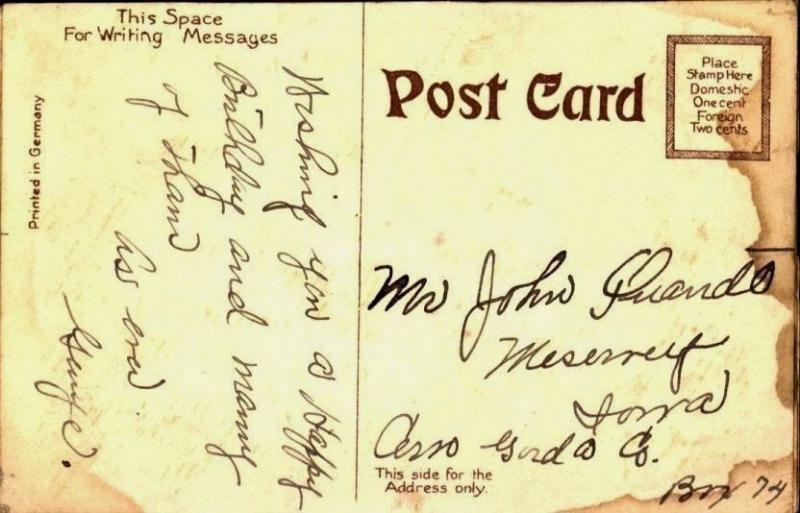 This Space
For Writing Messages
Printed in Germany
Wishing you a Happy
Birthday and many
of tham
As ever
George.
Post Card
Place
Stamp Here
Domestic
One cent
Foreign
Two cents
Mr John
Meservey
Iowa
Cerro Gordo Co.
This side for the
Address only.
Box 74